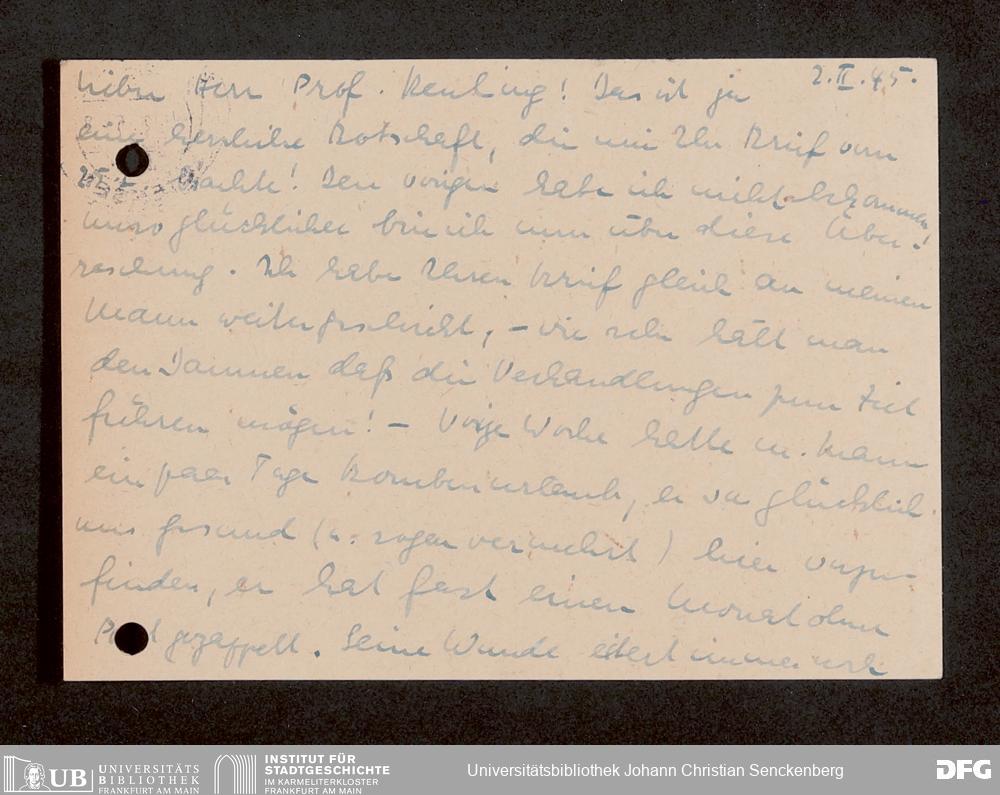 2.II.45.
Lieber Herr Prof. Reuling! Das ist ja
eine herrliche Botschaft, die mir Ihr Brief vom
brachte! Den vorigen habe ich nicht bekommen!
Umso glücklicher bin ich nun über diese Über-
raschung. Ich habe Ihren Brief gleich an meinen
Mann weitergeschickt, – wie sehr hält man
den Daumen daß die Verhandlungen zum Ziel
führen mögen! – Vorige Woche hatte m. Mann
ein paar Tage Bombenurlaub, er war glücklich
uns gesund (u. sogar vermehrt) hier vorzu-
finden, er hat fast einen Monat ohne
Post gezappelt. Seine Wunde eitert immer noch
UB UNIVERSITÄTS
BIBLIOTHEK
FRANKFURT AM MAIN
INSTITUT FÜR
STADTGESCHICHTE
IM KARMELITERKLOSTER
FRANKFURT AM MAIN
Universitätsbibliothek Johann Christian Senckenberg
DFG